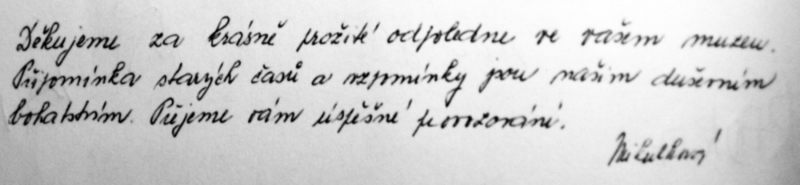 Děkujeme za krásně prožité odpoledne ve vašem muzeu.
Připomínka starých časů a vzpomínky jsou našim duševním
bohatstvím. Přejeme vám úspěšné provozování.
Mikulková